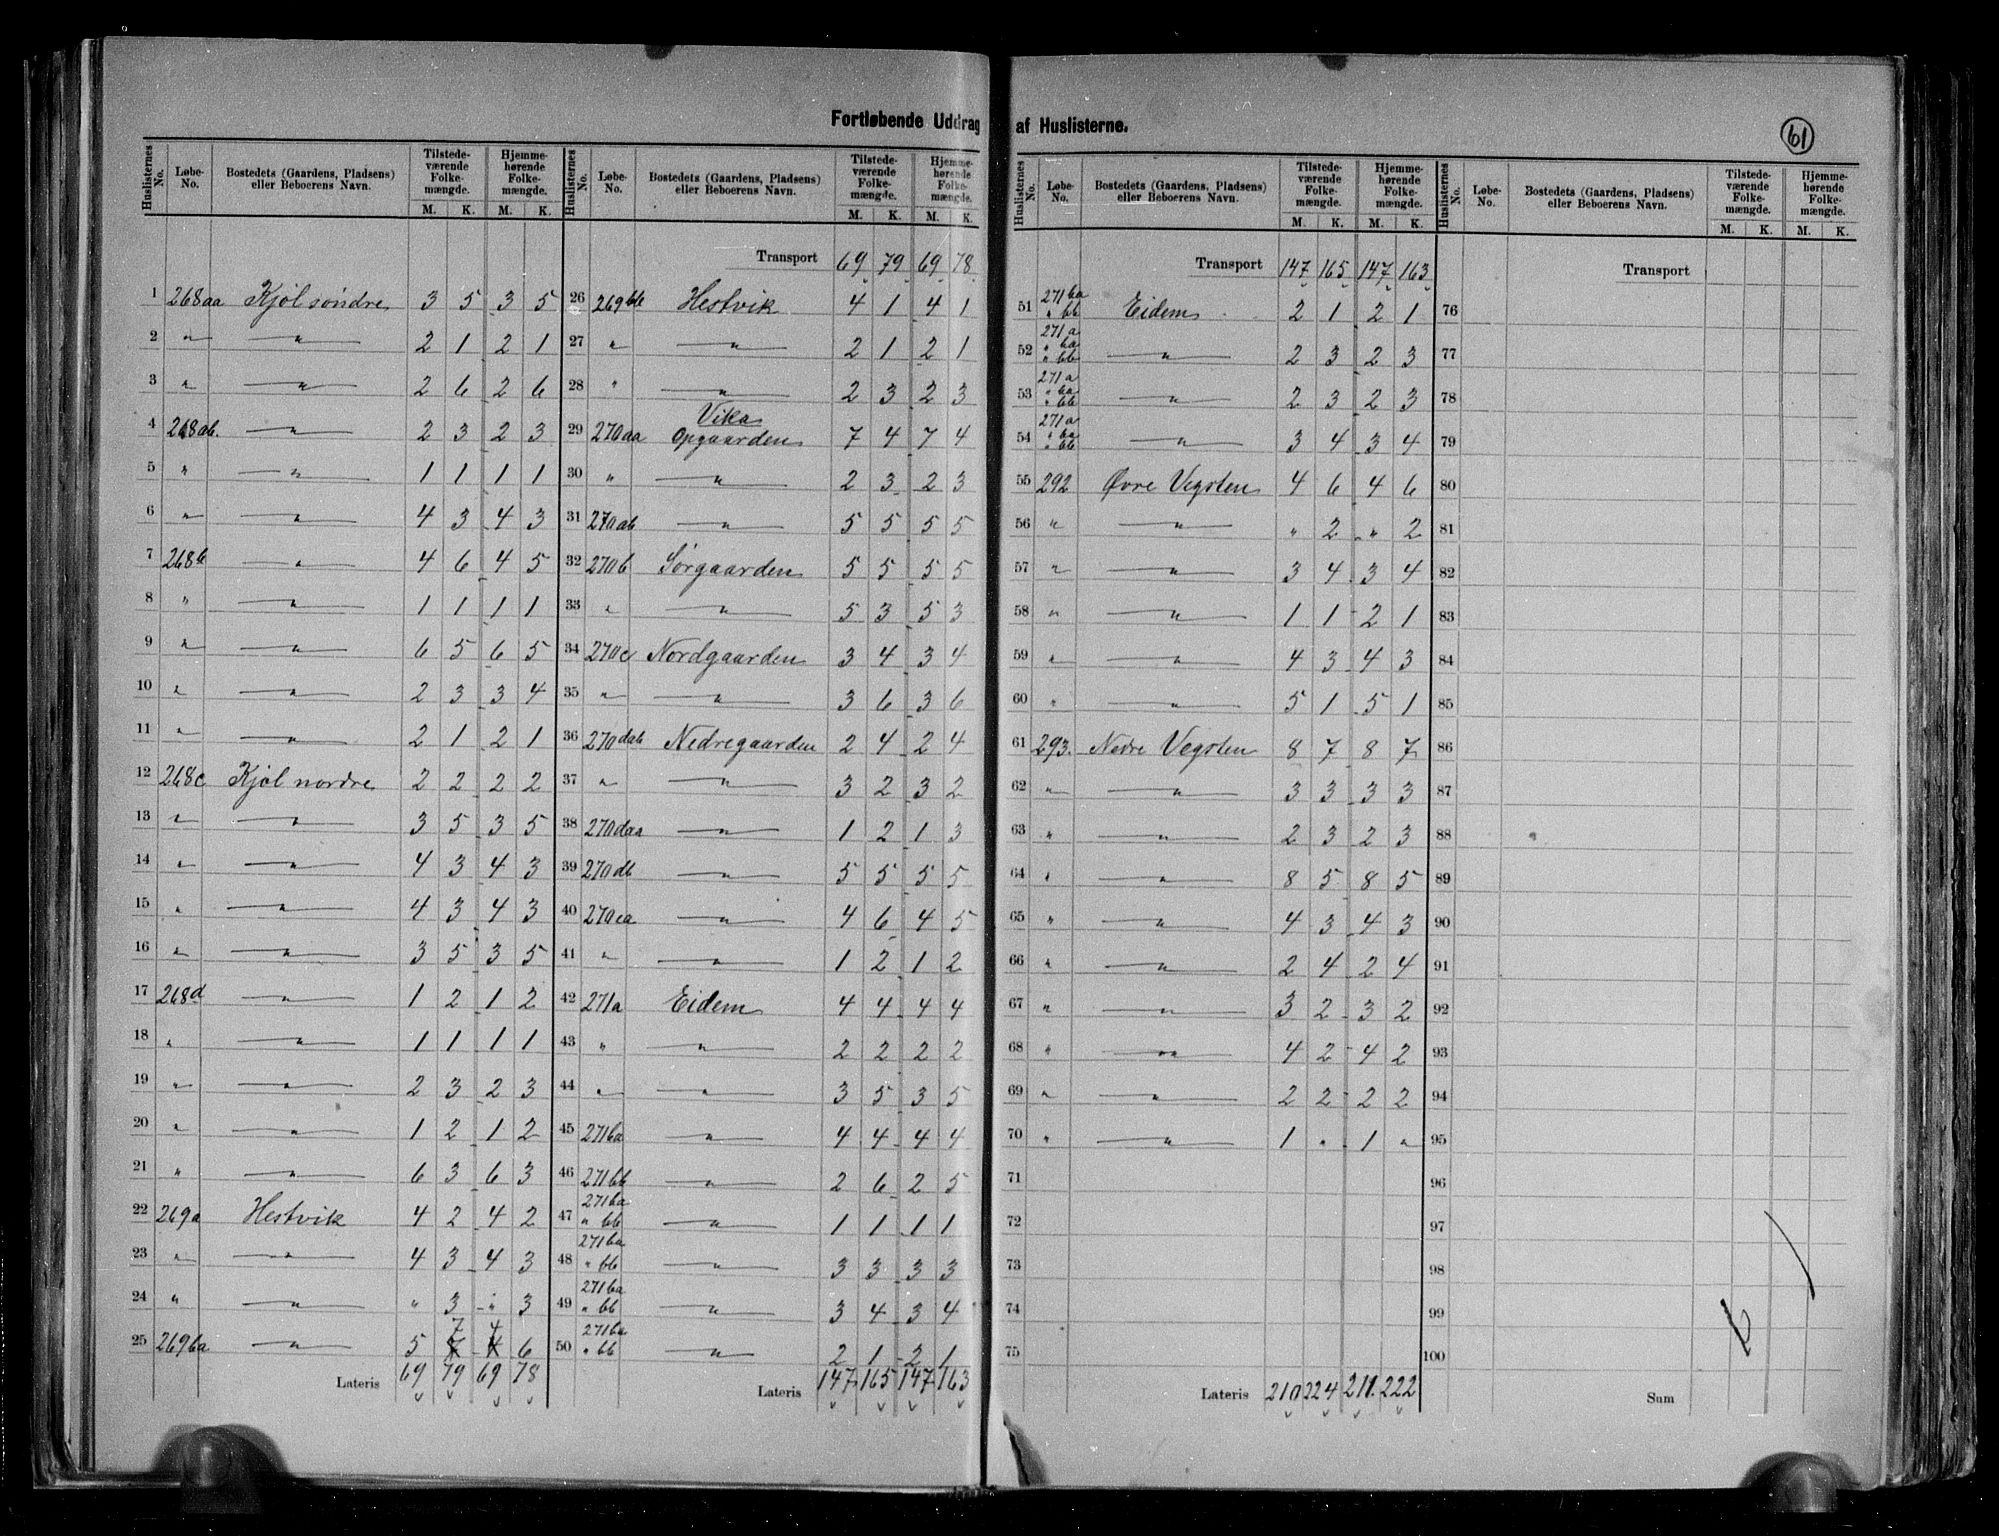 Fortløbende Uddrag af Huslisterne.
61
Huslisternes No. | Løbe-No. | Bostedets (Gaardens, Pladsens) eller Beboerens Navn. | Tilstedeværende Folkemængde. M. K. | Hjemmehørende Folkemængde. M. K.
1 268aa Kjøl søndre 3 5 3 5
2 " " 2 1 2 1
3 " " 2 6 2 6
4 268ab. " 2 3 2 3
5 " " 1 1 1 1
6 " " 4 3 4 3
7 268b " 4 6 4 5
8 " " 1 1 1 1
9 " " 6 5 6 5
10 " " 2 3 3 4
11 " " 2 1 2 1
12 268c Kjøl nordre 2 2 2 2
13 " " 3 5 3 5
14 " " 4 3 4 3
15 " " 4 3 4 3
16 " " 3 5 3 5
17 268d " 1 2 1 2
18 " " 1 1 1 1
19 " " 2 3 2 3
20 " " 1 2 1 2
21 " " 6 3 6 3
22 269a Hestvik 4 2 4 2
23 " " 4 3 4 3
24 " " " 3 " 3
25 269ba " 5 7 4 6
Lateris 69 79 69 78
Huslisternes No. | Løbe-No. | Bostedets (Gaardens, Pladsens) eller Beboerens Navn. | Tilstedeværende Folkemængde. M. K. | Hjemmehørende Folkemængde. M. K.
Transport 69 79 69 78
26 269bb Hestvik 4 1 4 1
27 " " 2 1 2 1
28 " " 2 3 2 3
29 270aa Vika Opgaarden 7 4 7 4
30 " " 2 3 2 3
31 270ab " 5 5 5 5
32 270b Sørgaarden 5 5 5 5
33 " " 5 3 5 3
34 270c Nordgaarden 3 4 3 4
35 " " 3 6 3 6
36 270dab Nedregaarden 2 4 2 4
37 " " 3 2 3 2
38 270daa " 1 2 1 3
39 270db " 5 5 5 5
40 270ea " 4 6 4 5
41 " " 1 2 1 2
42 271a Eidem 4 4 4 4
43 " " 2 2 2 2
44 " " 3 5 3 5
45 271ba " 4 4 4 4
46 271bb " 2 6 2 5
47 271ba " bb " 1 1 1 1
48 271ba " bb " 3 3 3 3
49 271ba " bb " 3 4 3 4
50 271ba " bb " 2 1 2 1
Lateris 147 165 147 163
Huslisternes No. | Løbe-No. | Bostedets (Gaardens, Pladsens) eller Beboerens Navn. | Tilstedeværende Folkemængde. M. K. | Hjemmehørende Folkemængde. M. K.
Transport 147 165 147 163
51 271ba " bb Eidem 2 1 2 1
52 271a " ba " bb " 2 3 2 3
53 271a " ba " bb " 2 3 2 3
54 271a " ba " bb " 3 4 3 4
55 292 Øvre Vegsten 4 6 4 6
56 " " " 2 " 2
57 " " 3 4 3 4
58 " " 1 1 2 1
59 " " 4 3 4 3
60 " " 5 1 5 1
61 293. Nedre Vegsten 8 7 8 7
62 " " 3 3 3 3
63 " " 2 3 2 3
64 " " 8 5 8 5
65 " " 4 3 4 3
66 " " 2 4 2 4
67 " " 3 2 3 2
68 " " 4 2 4 2
69 " " 2 2 2 2
70 " " 1 " 1 "
71
72
73
74
75
Lateris 210 224 211. 222
Huslisternes No. | Løbe-No. | Bostedets (Gaardens, Pladsens) eller Beboerens Navn. | Tilstedeværende Folkemængde. M. K. | Hjemmehørende Folkemængde. M. K.
Transport
76
77
78
79
80
81
82
83
84
85
86
87
88
89
90
91
92
93
94
95
96
97
98
99
100
Sum